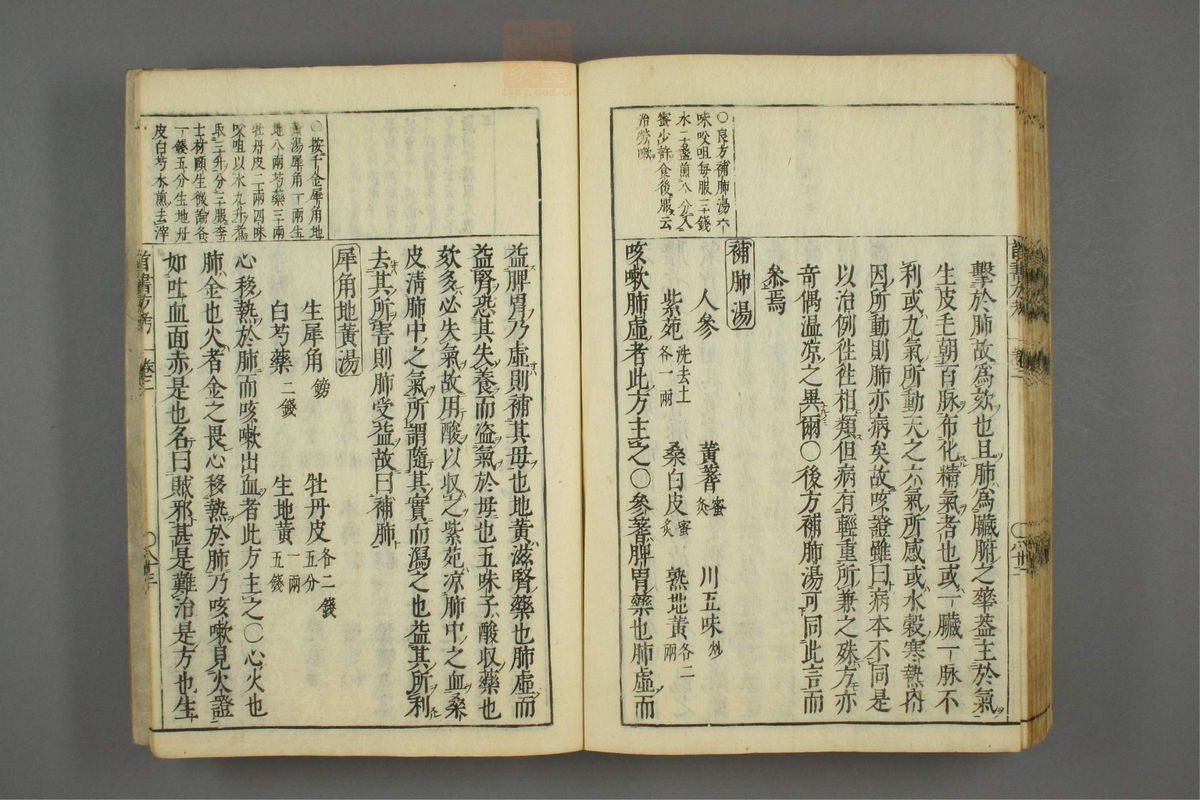 ○良方補肺湯六
味㕮咀每服三錢
水二盞煎八分入
蜜少許食後服云
治勞嗽
擊於肺故為欬也且肺為臟腑之華蓋主於氣
生皮毛朝百脉布化精氣者也或一臟一脉不
利或九氣所動天之六氣所感或水穀寒熱內
因所動則肺亦病矣故咳證雖曰病本不同是
以治例徃徃相類但病有輕重所兼之殊方亦
奇偶温凉之異爾○後方補肺湯可同此言而
叅焉
補肺湯
人參 黃蓍蜜炙 川五味炒
紫菀洗去土各一兩 桑白皮蜜炙 熟地黃各二兩
咳嗽肺虛者此方主之○參蓍脾胃藥也肺虛而
益脾胃乃虛則補其母也地黃滋腎藥也肺虛而
益腎恐其失養而盗氣於母也五味子酸収藥也
欬多必失氣故用酸以収之紫菀凉肺中之血桑
皮清肺中之氣所謂隨其實而瀉之也益其所利
去其所害則肺受益故曰補肺
犀角地黃湯
生犀角鎊 牡丹皮各二錢五分
白芍藥二錢 生地黃一兩五錢
心移熱於肺而咳嗽出血者此方主之○心火也
肺金也火者金之畏心移熱於肺乃咳嗽見火證
如吐血面赤是也名曰賊邪甚是難治是方也生
○按千金犀角地
黃湯犀角一兩生
地八兩芍藥三兩
牡丹皮二兩四味
㕮咀以水九升煮
取三升分三服李
士材頤生微論各
一錢五分生地丹
皮白芍水煎去滓